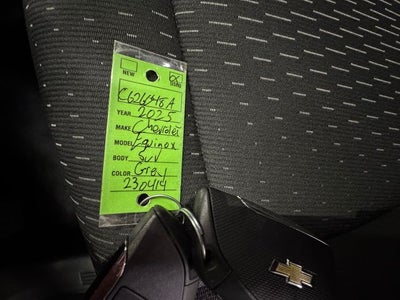 NEW USED
C62448A
YEAR 2025
MAKE Chevrolet
MODEL Equinox
BODY SUV
COLOR Grey
230414